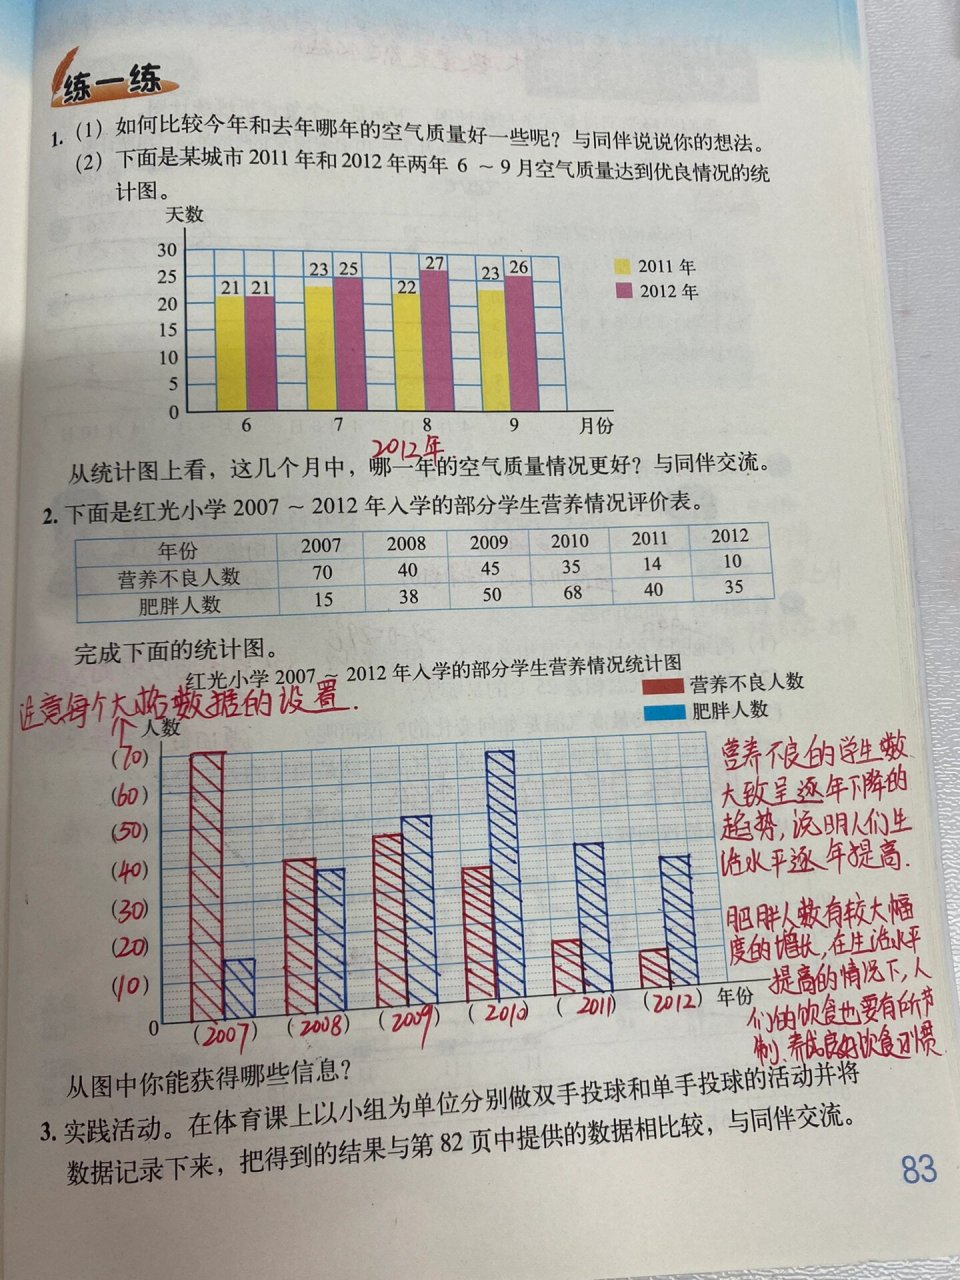 练一练
1. (1) 如何比较今年和去年哪年的空气质量好一些呢？与同伴说说你的想法。
(2) 下面是某城市 2011 年和 2012 年两年 6 ~ 9 月空气质量达到优良情况的统
计图。
天数
30
25
20
15
10
5
0
21 21 23 25 22 27 23 26
2011 年
2012 年
6 7 8 9 月份
2012年.
从统计图上看，这几个月中，哪一年的空气质量情况更好？与同伴交流。
2. 下面是红光小学 2007 ~ 2012 年入学的部分学生营养情况评价表。
年份 2007 2008 2009 2010 2011 2012
营养不良人数 70 40 45 35 14 10
肥胖人数 15 38 50 68 40 35
完成下面的统计图。
红光小学 2007 ~ 2012 年入学的部分学生营养情况统计图
营养不良人数
肥胖人数
注意每个大格数据的设置.
人数
(70)
(60)
(50)
(40)
(30)
(20)
(10)
0
(2007) (2008) (2009) (2010) (2011) (2012) 年份
营养不良的学生数
大致呈逐年下降的
趋势，说明人们生
活水平逐年提高.
肥胖人数有较大幅
度的增长，在生活水平
提高的情况下，人
们的饮食也要有所节
制，养成良好饮食习惯.
从图中你能获得哪些信息？
3. 实践活动。在体育课上以小组为单位分别做双手投球和单手投球的活动并将
数据记录下来，把得到的结果与第 82 页中提供的数据相比较，与同伴交流。
83